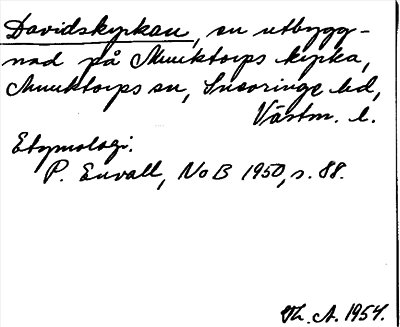 Davidskyrkan, en utbygg-
nad på Munktorps kyrka,
Munktorps sn, Snevringe hd,
Västm. l.
Etymologi.
P. Envall, NoB 1950, s. 88.
Th. A. 1954.